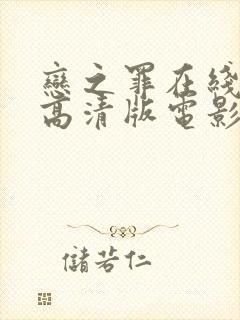 戀之罪在綫
高清版電影
儲若仁